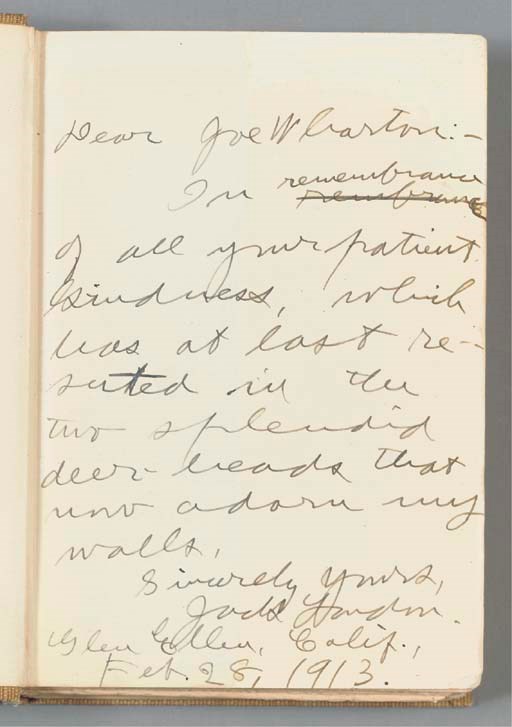 Dear Joe Wharton:-
In remembrance
rembrance
of all your patient
kindness, which
has at last re-
sulted in the
two splendid
deer-heads that
now adorn my
walls,
Sincerely yours,
Jack London.
Glen Ellen, Calif.,
Feb. 28, 1913.